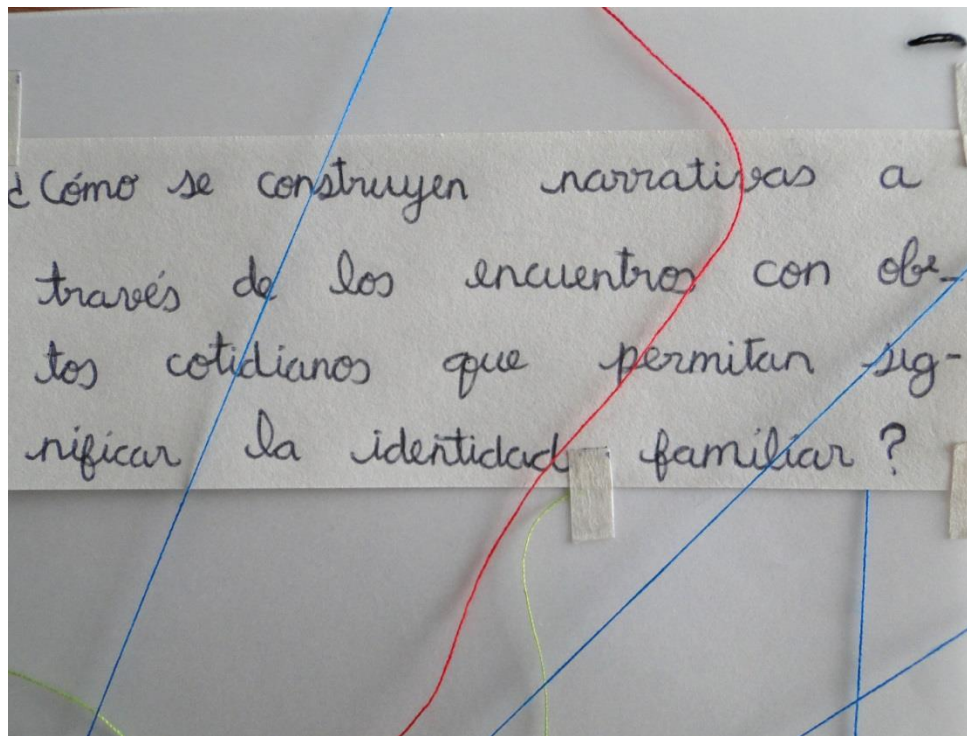 ¿Cómo se construyen narrativas a
través de los encuentros con obje-
tos cotidianos que permitan sig-
nificar la identidad familiar?